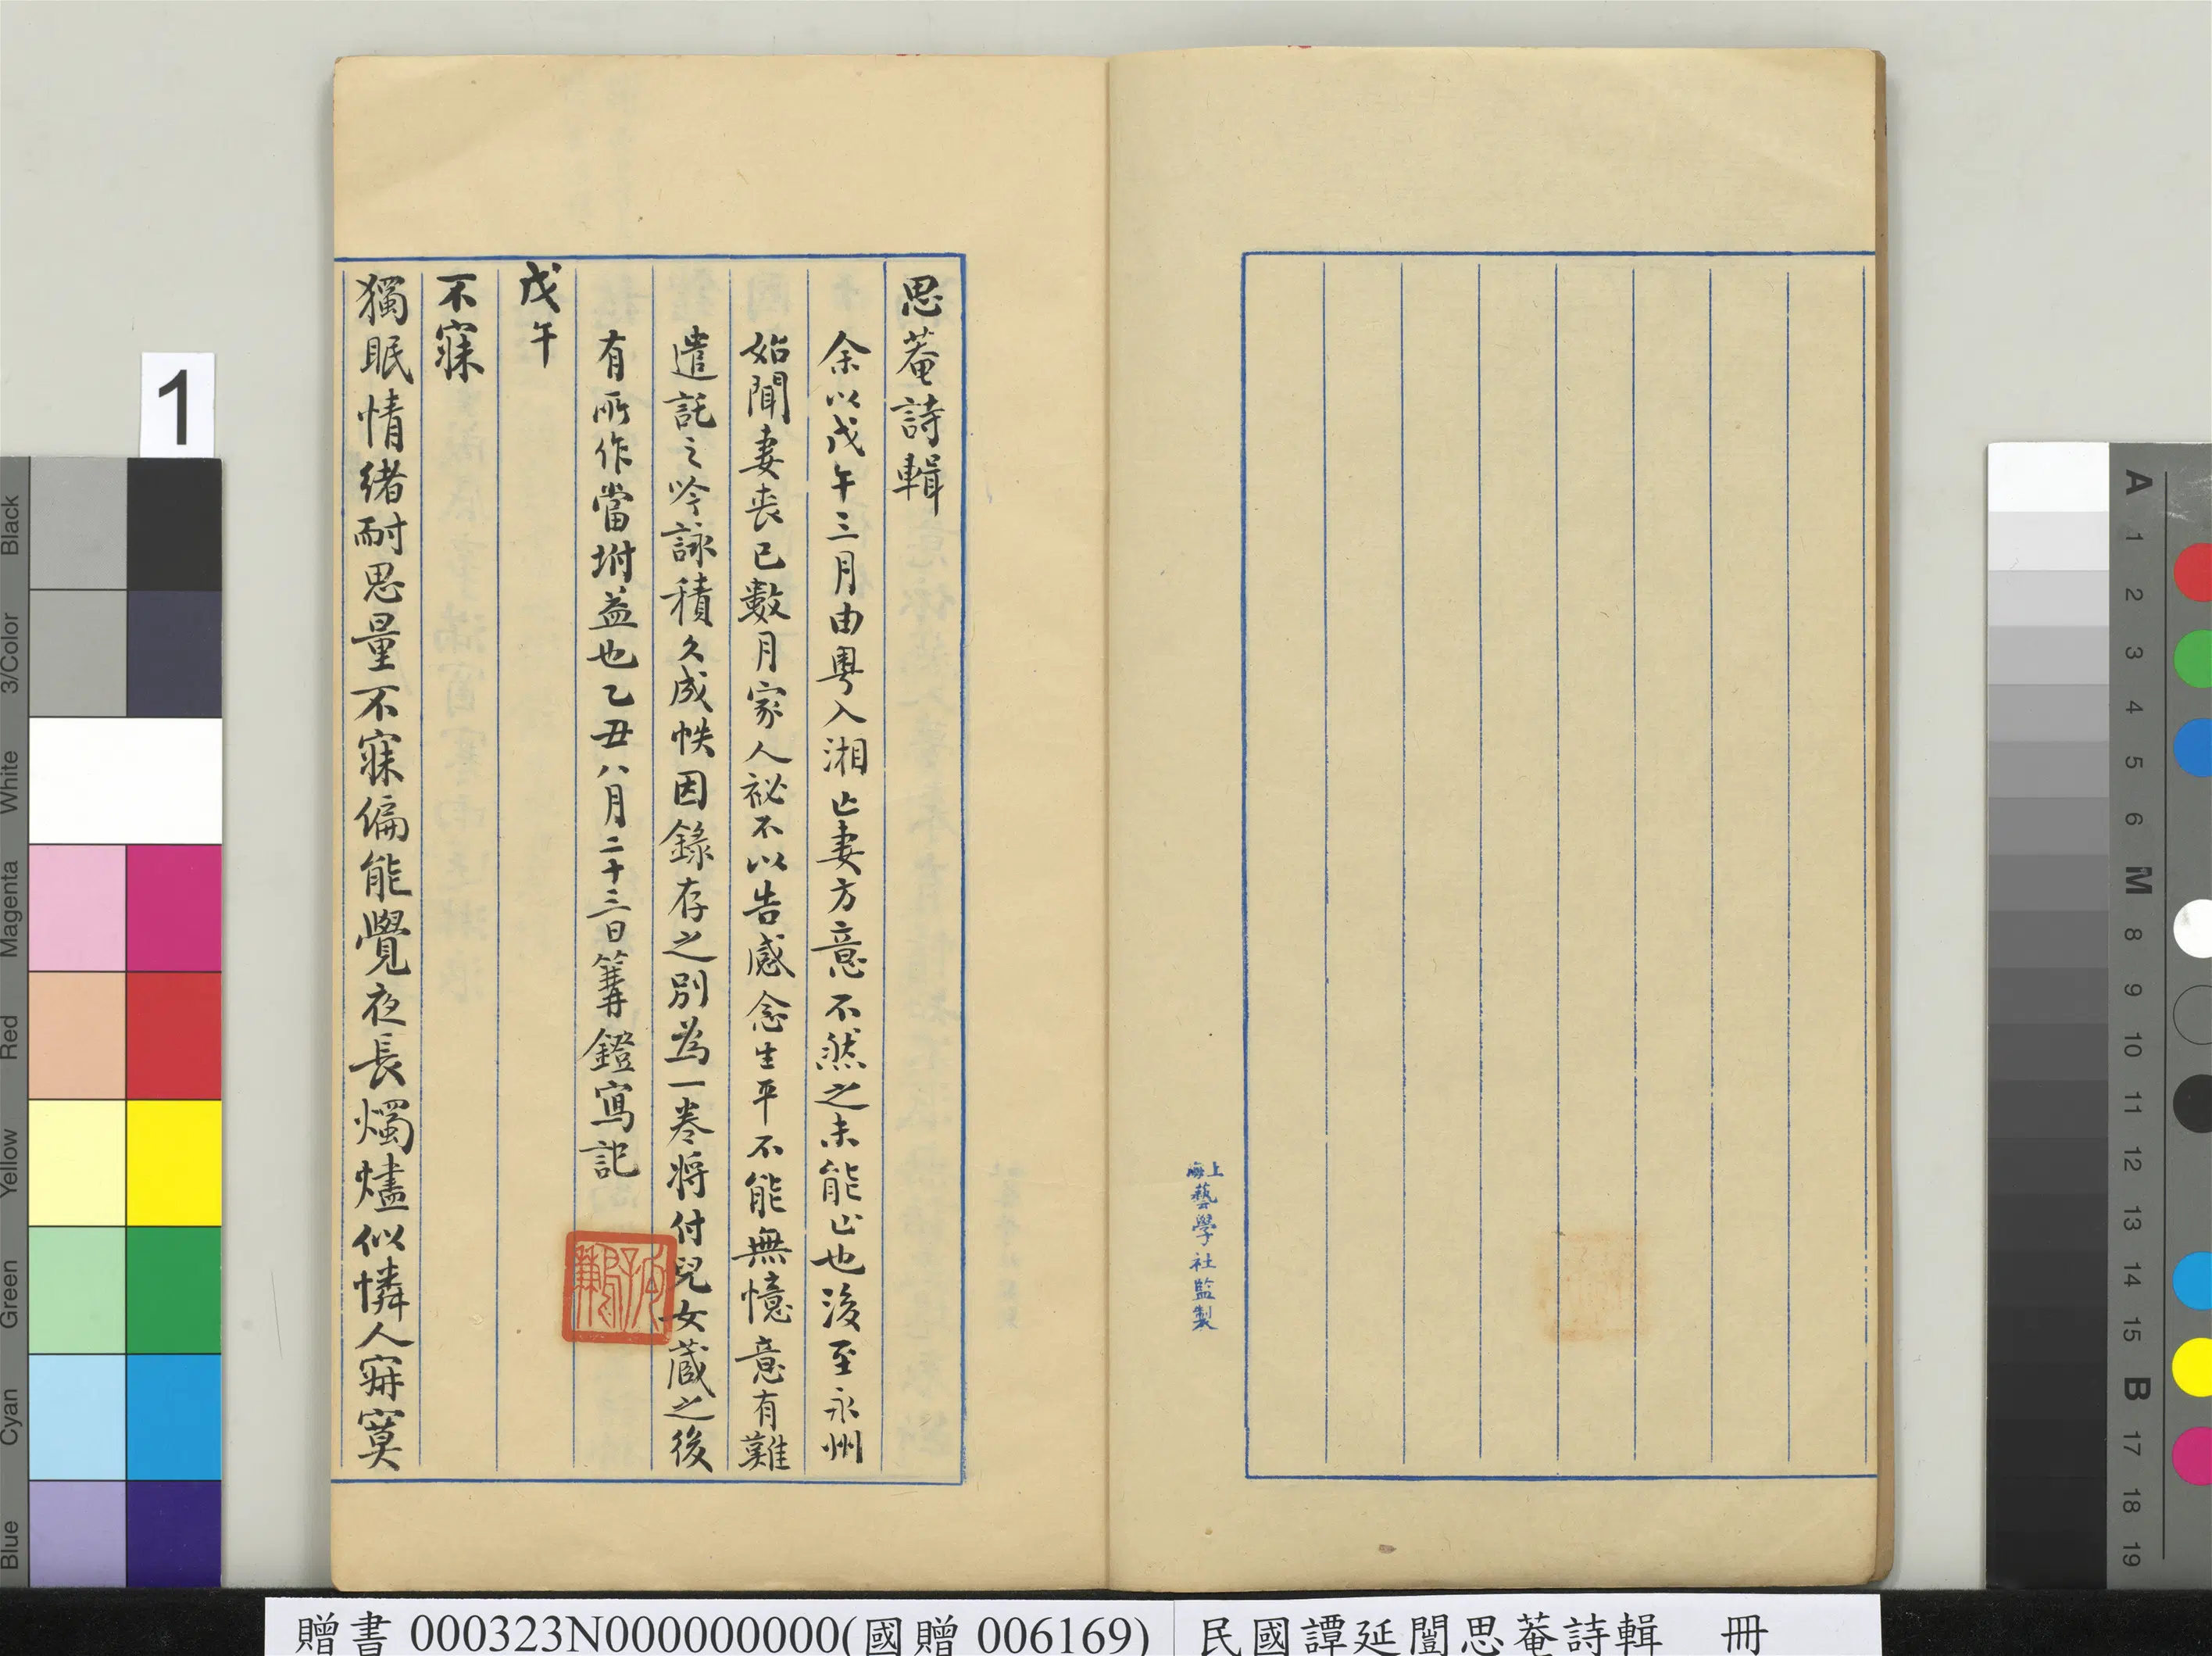 思菴詩輯
余以戊午三月由粵入湘亡妻方意不然之未能止也後至永州
始聞妻喪已數月家人祕不以告感念生平不能無憶意有難
遣託之吟詠積久成帙因錄存之別為一卷將付兒女藏之後
有所作當坿益也乙丑八月二十三日篝鐙寫記
戊午
不寐
獨眠情緒耐思量不寐偏能覺夜長燭燼似憐人寂寞
上海藝學社監製
1
Black
3/Color
White
Magenta
Red
Yellow
Green
Cyan
Blue
A
1
2
3
4
5
6
M
8
9
10
11
12
13
14
15
B
17
18
19
贈書 000323N000000000(國贈 006169)
民國譚延闓思菴詩輯 冊